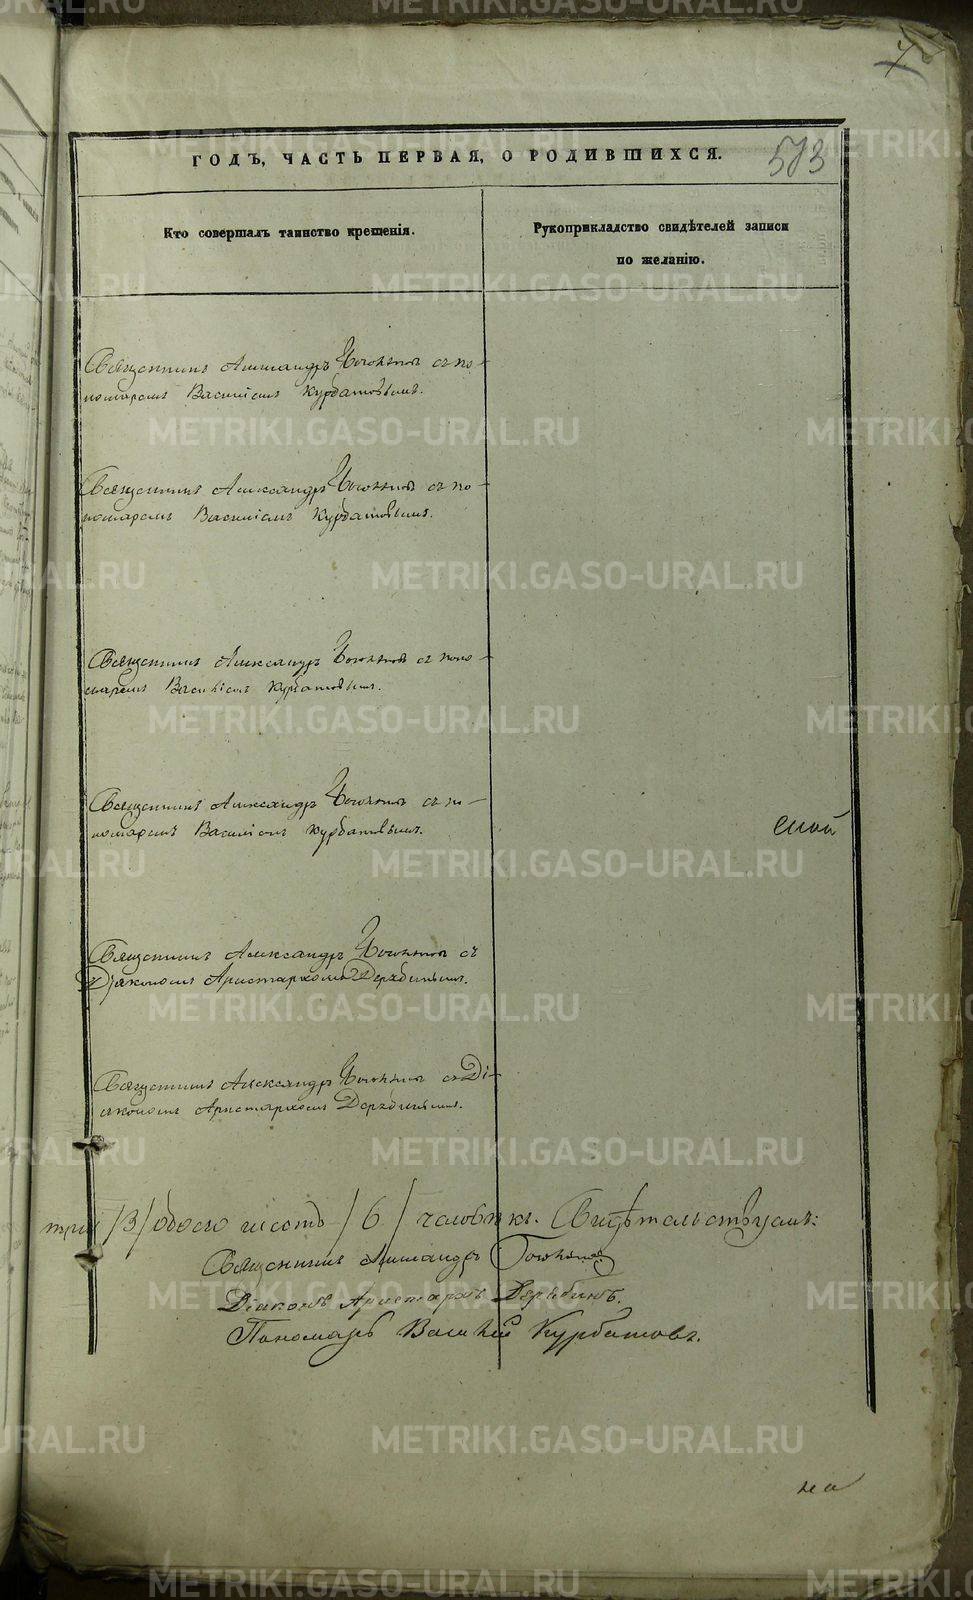 ГОДЪ, ЧАСТЬ ПЕРВАЯ, О РОДИВШИХСЯ.
573
Кто совершалъ таинство крещенія.
Рукоприкладство свидѣтелей записи
по желанію.
Священникъ Александръ съ по-
номаремъ Василіемъ Курбатовымъ.
Священникъ Александръ съ по-
номаремъ Василіемъ Курбатовымъ.
Священникъ Александръ съ поно-
маремъ Василіемъ Курбатовымъ.
Священникъ Александръ съ по-
номаремъ Василіемъ Курбатовымъ.
Священникъ Александръ съ
Діакономъ Аристархомъ Дерябинымъ.
Священникъ Александръ съ Ді-
акономъ Аристархомъ Дерябинымъ.
три /3/ обоего шесть /6/ человѣкъ. Свидѣтельствуемъ:
Священникъ Александръ
Діаконъ Аристархъ Дерябинъ.
Пономарь Василій Курбатовъ.
на
METRIKI.GASO-URAL.RU